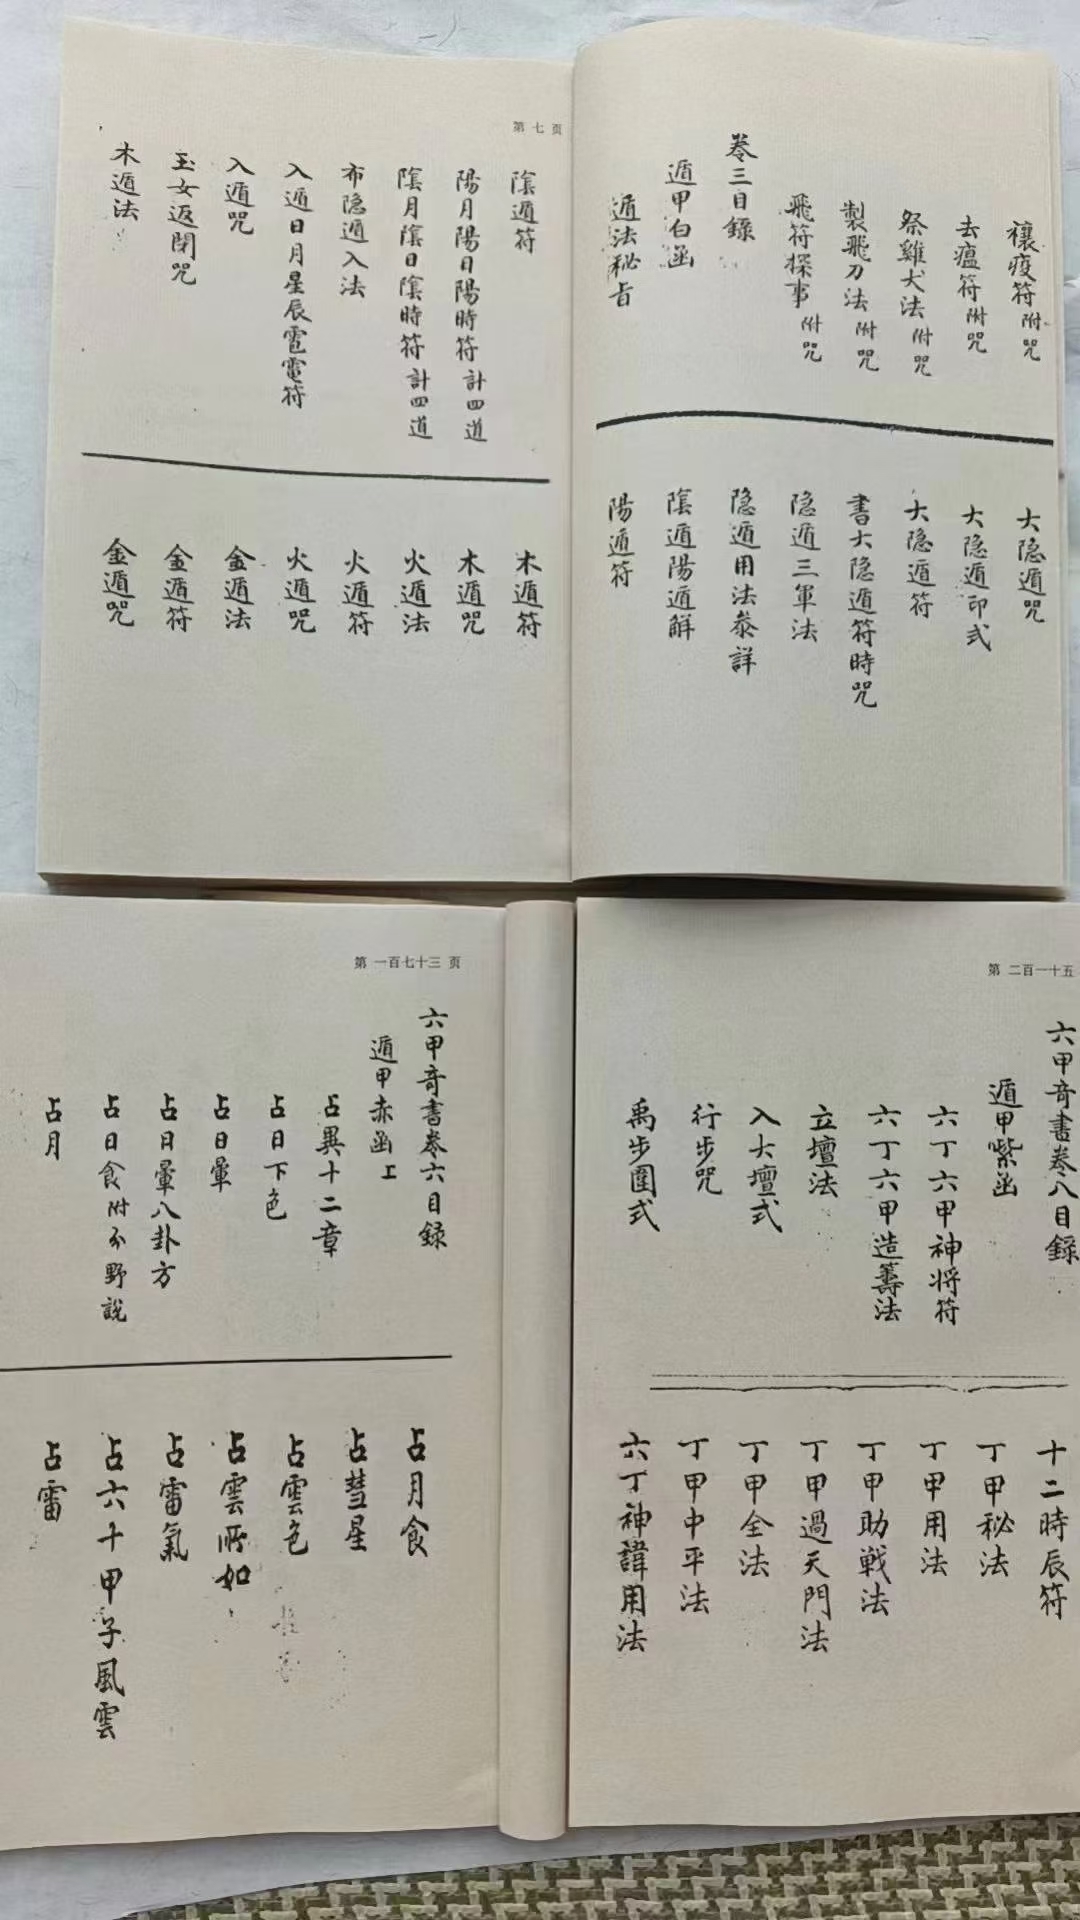 禳疫符附咒
去瘟符附咒
祭雞犬法附咒
製飛刀法附咒
飛符探事附咒
卷三目錄
遁甲白函
遁法秘旨
大隐遁咒
大隐遁印式
大隐遁符
書大隐遁符時咒
隐遁三軍法
隐遁用法叅詳
陰遁陽遁解
陽遁符
第七页
陰遁符
陽月陽日陽時符計四道
陰月陰日陰時符計四道
布隐遁入法
入遁日月星辰雹電符
入遁咒
玉女返閉咒
木遁法
木遁符
木遁咒
火遁法
火遁符
火遁咒
金遁法
金遁符
金遁咒
第 一百七十三 页
六甲竒書卷六目錄
遁甲赤函上
占異十二章
占日下色
占日暈
占日暈八卦方
占日食附分野說
占月
占月食
占彗星
占雲色
占雲所如
占雷氣
占六十甲子風雲
占雷
第 二百一十五
六甲竒書卷八目錄
遁甲紫函
六丁六甲神将符
六丁六甲造籌法
立壇法
入大壇式
行步咒
禹步圍式
十二時辰符
丁甲秘法
丁甲用法
丁甲助戰法
丁甲過天門法
丁甲全法
丁甲中平法
六丁神諱用法